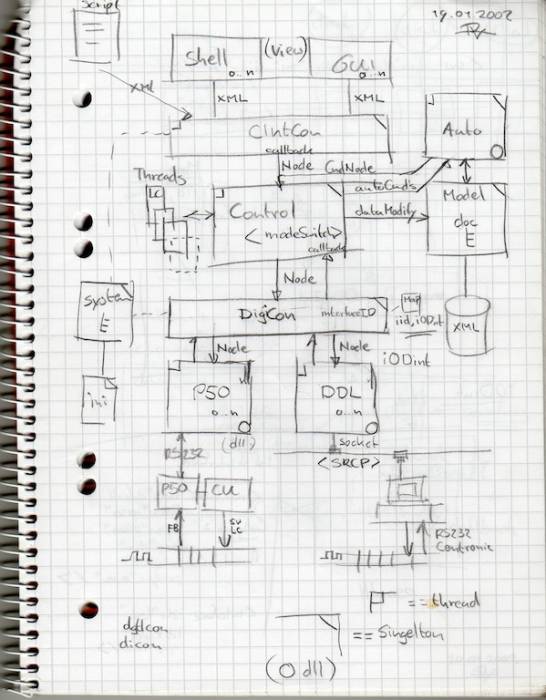 Script
19.01.2002
Shell (View) GUI
0..n 0..n
XML
XML XML
ClntCon
callback
Auto
Node CmdNode
Threads
autoCmds
LC
Control
dataModify
Model
doc
E
<modeSwitch>
callback
Node
system
E
DigiCon interfaceID
Map
iid, iODint
XML
Node Node
iODint
ini
P50 DDL
0..n 0..n
(dll) socket
RS232
<SRCP>
P50 CU
FB SV
LC
RS232
Contronic
== thread
dgtlcon
dicon
== Singelton
(O dll)